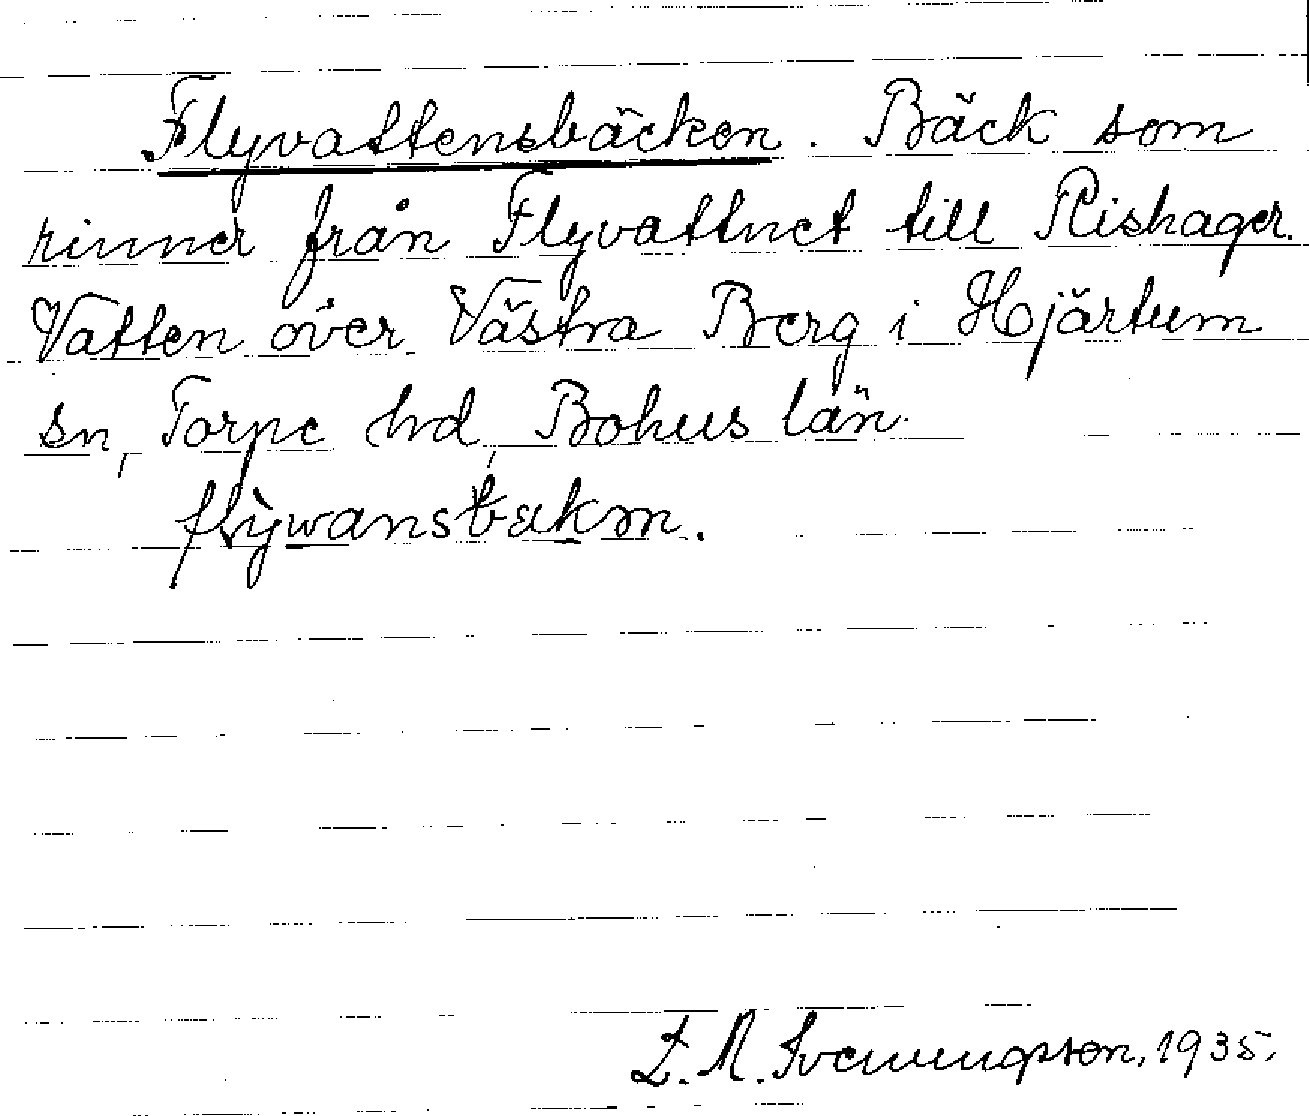 Flyvattensbäcken. Bäck som
rinner från Flyvattnet till Rishager.
Vatten över Västra Berg i Hjärtum
sn, Torpe hd, Bohus län.
flỳwansbækm.
E. M. Svenningson, 1935.